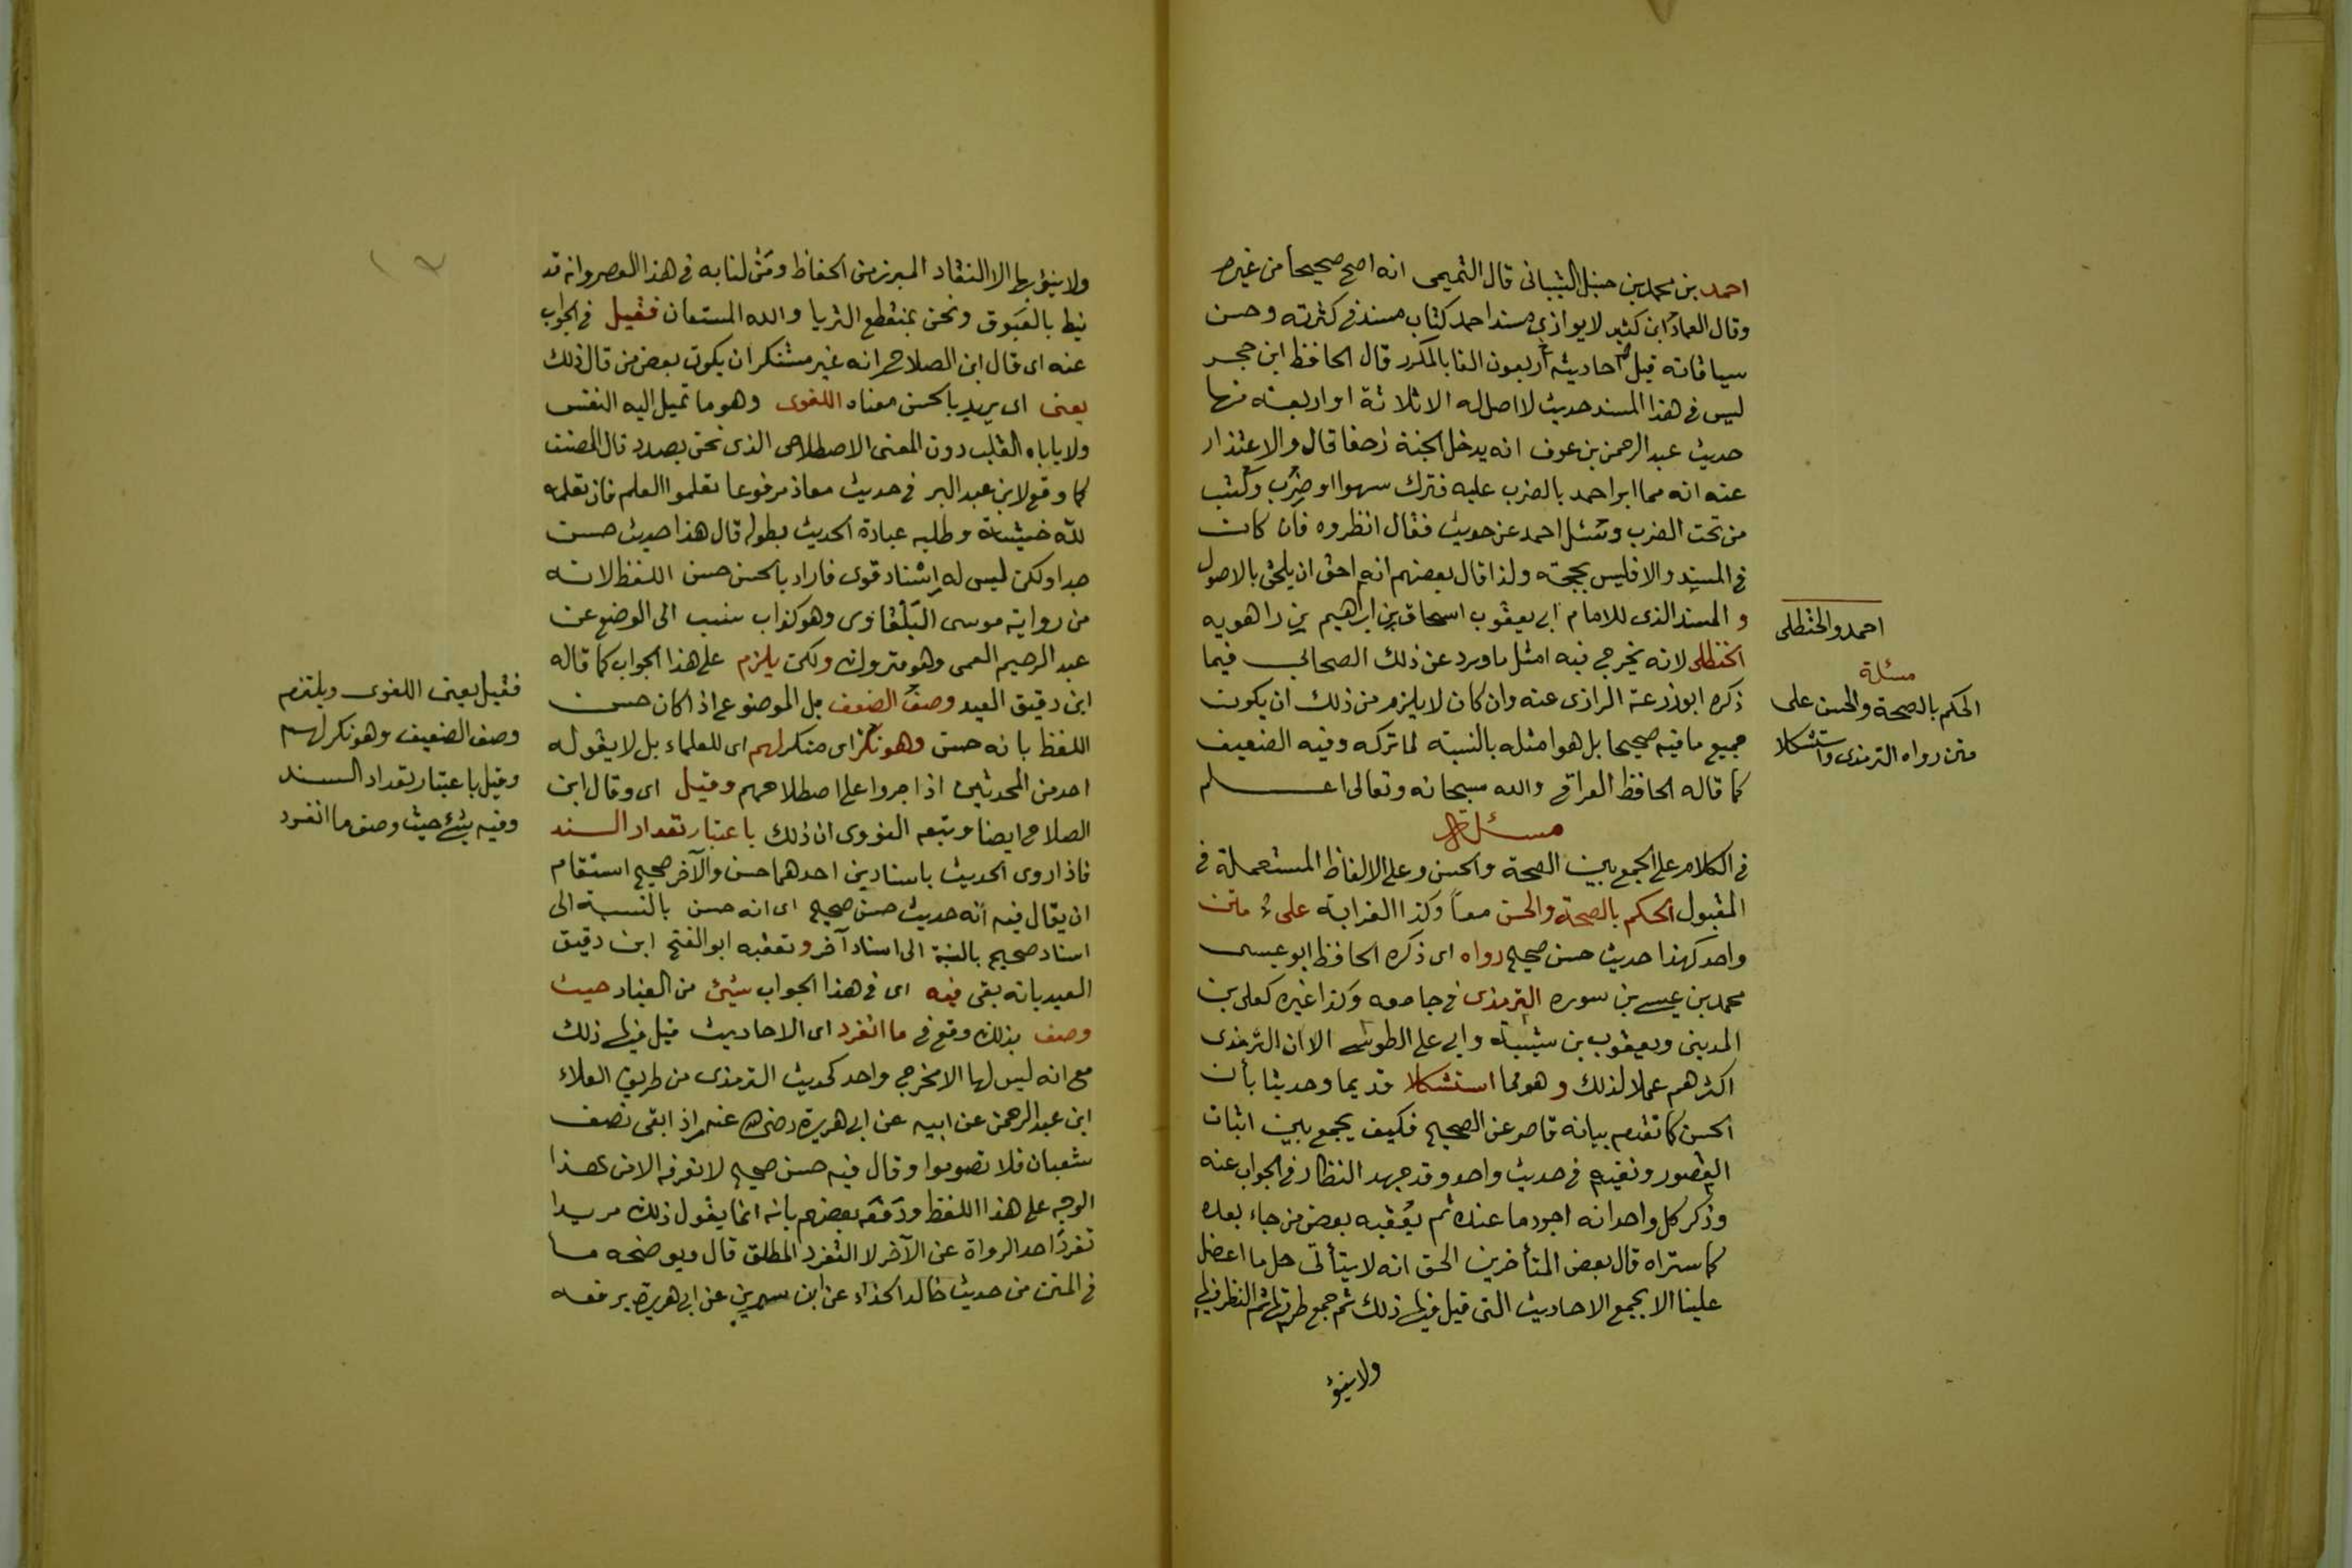 احمد بن محمد بن حنبل الشيبانى قال التميمى انه اصح صحيحا من غيره
وقال العماد ابن كثير لايوازى مسند احمد كتاب مسند فى كثرته وحسن
سياقاته قيل احاديثه اربعون الفا بالمكرر قال الحافظ ابن حجر
ليس فى هذا المسند حديث لا اصل له الا ثلاثة او اربعة منها
حديث عبد الرحمن بن عوف انه يدخل الجنة زحفا قال والاعتذار
عنه انه مما امر احمد بالضرب عليه فترك سهوا او ضرب وكتب
من تحت الضرب وسئل احمد عن حديث فقال انظروه فان كان
فى المسند والا فليس بحجة ولذا قال بعضهم انه احق ان يلحق بالاصول
و المسند الذى للامام ابى يعقوب اسحاق بن ابراهيم بن راهويه
الحنظلى لانه يخرج فيه امثل ماورد عن ذلك الصحابى فيما
ذكره ابوزرعة الرازى عنه وان كان لايلزم من ذلك ان يكون
جميع ما فيه صحيحا بل هو امثله بالنسبة لما تركه وفيه الضعيف
كما قاله الحافظ العراقى والله سبحانه وتعالى اعلم
مسئلة
فى الكلام على الجمع بين الصحة والحسن وعلى الالفاظ المستعملة فى
المقبول الحكم بالصحة والحسن معاً وكذا الغرابة على متن
واحد كهذا حديث حسن صحيح رواه اى ذكره الحافظ ابو عيسى
محمد بن عيسى بن سوره الترمذى فى جامعه وكذا غيره كعلى بن
المدينى ويعقوب بن شيبة وابى على الطوسى الا ان الترمذى
اكثرهم عملا لذلك وهو مما استشكلا قديما وحديثا بأن
الحسن كما تقدم بيانه قاصر عن الصحيح فكيف يجمع بين اثبات
القصور ونفيه فى حديث واحد وقد جهد النظار فى الجواب عنه
وذكر كل واحد انه اجود ما عنده ثم يعقبه بعض من جاء بعده
كما ستراه قال بعض المتأخرين الحق انه لايتأتى حل ما اعضل
علينا الا بجمع الاحاديث التى قيل فيها ذلك ثم جمع طرقها ثم النظر فيها
ولا ينوؤ
احمد والحنظلى
مسئلة
الحكم بالصحة والحسن على
متن رواه الترمذى واستشكلا
ولا ينوؤ بها الا النقاد المبرز من الحفاظ ومَن لنا به فى هذا العصر وانه قد
نيط بالعَيوق ونحن بمنقطع الثريا والله المستعان فقيل فى الجواب
عنه اى قال ابن الصلاح انه غير مستنكر ان يكون بعض من قال ذلك
يعنى اى يريد بالحسن معناه اللغوى وهو ما تميل اليه النفس
ولا ياباه القلب دون المعنى الاصطلاحى الذى نحن بصدده قال المصنف
كما وقع لابن عبد البر فى حديث معاذ مرفوعا تعلموا العلم فان تعلمه
لله خشية وطلبه عبادة الحديث بطوله قال هذا حديث حسن
جدا ولكن ليس له اسناد قوى فاراد بالحسن حسن اللفظ لانه
من رواية موسى البَلْقاوى وهو كذاب ينسب الى الوضع عن
عبد الرحيم العمى وهو متروك ولكن يلزم على هذا الجواب كما قاله
ابن دقيق العيد وصف الضعف بل الموضوع اذا كان حسن
اللفظ بانه حسن وهو نكر اى منكر لهم اى للعلماء بل لا يقوله
احد من المحدثين اذا جروا على اصطلاحهم وقيل اى وقال ابن
الصلاح ايضا وتبعه النووى ان ذلك باعتبار تعداد السند
فاذا روى الحديث باسنادين احدهما حسن والآخر صحيح استقام
ان يقال فيه انه حديث حسن صحيح اى انه حسن بالنسبة الى
اسناد صحيح بالنسبة الى اسناد آخر وتعقبه ابو الفتح ابن دقيق
العيد بانه بقى فيه اى فى هذا الجواب شيئ من العناد حيث
وصف بذلك وقع فى ما انفرد اى الاحاديث قيل فيها ذلك
مع انه ليس لها الا مخرج واحد كحديث الترمذى من طريق العلاء
ابن عبد الرحمن عن ابيه عن ابى هريرة رضى الله عنه اذ ابقى نصف
شعبان فلا تصوموا وقال فيه حسن صحيح لا نعرفه الا من هذا
الوجه على هذا اللفظ ودَفَعَه بعضهم بانه انما يقول ذلك مريدا
تفرد احد الرواة عن الآخر لا التفرد المطلق قال ويوضحه ما
فى المتن من حديث خالد الحذاء عن ابن سيرين عن ابى هريرة يرفعه
فقيل يعنى اللغوى ويلتزم
وصف الضعيف وهو نكر لهم
وقيل باعتبار تعداد السند
وفيه شئ حيث وصف ما انفرد